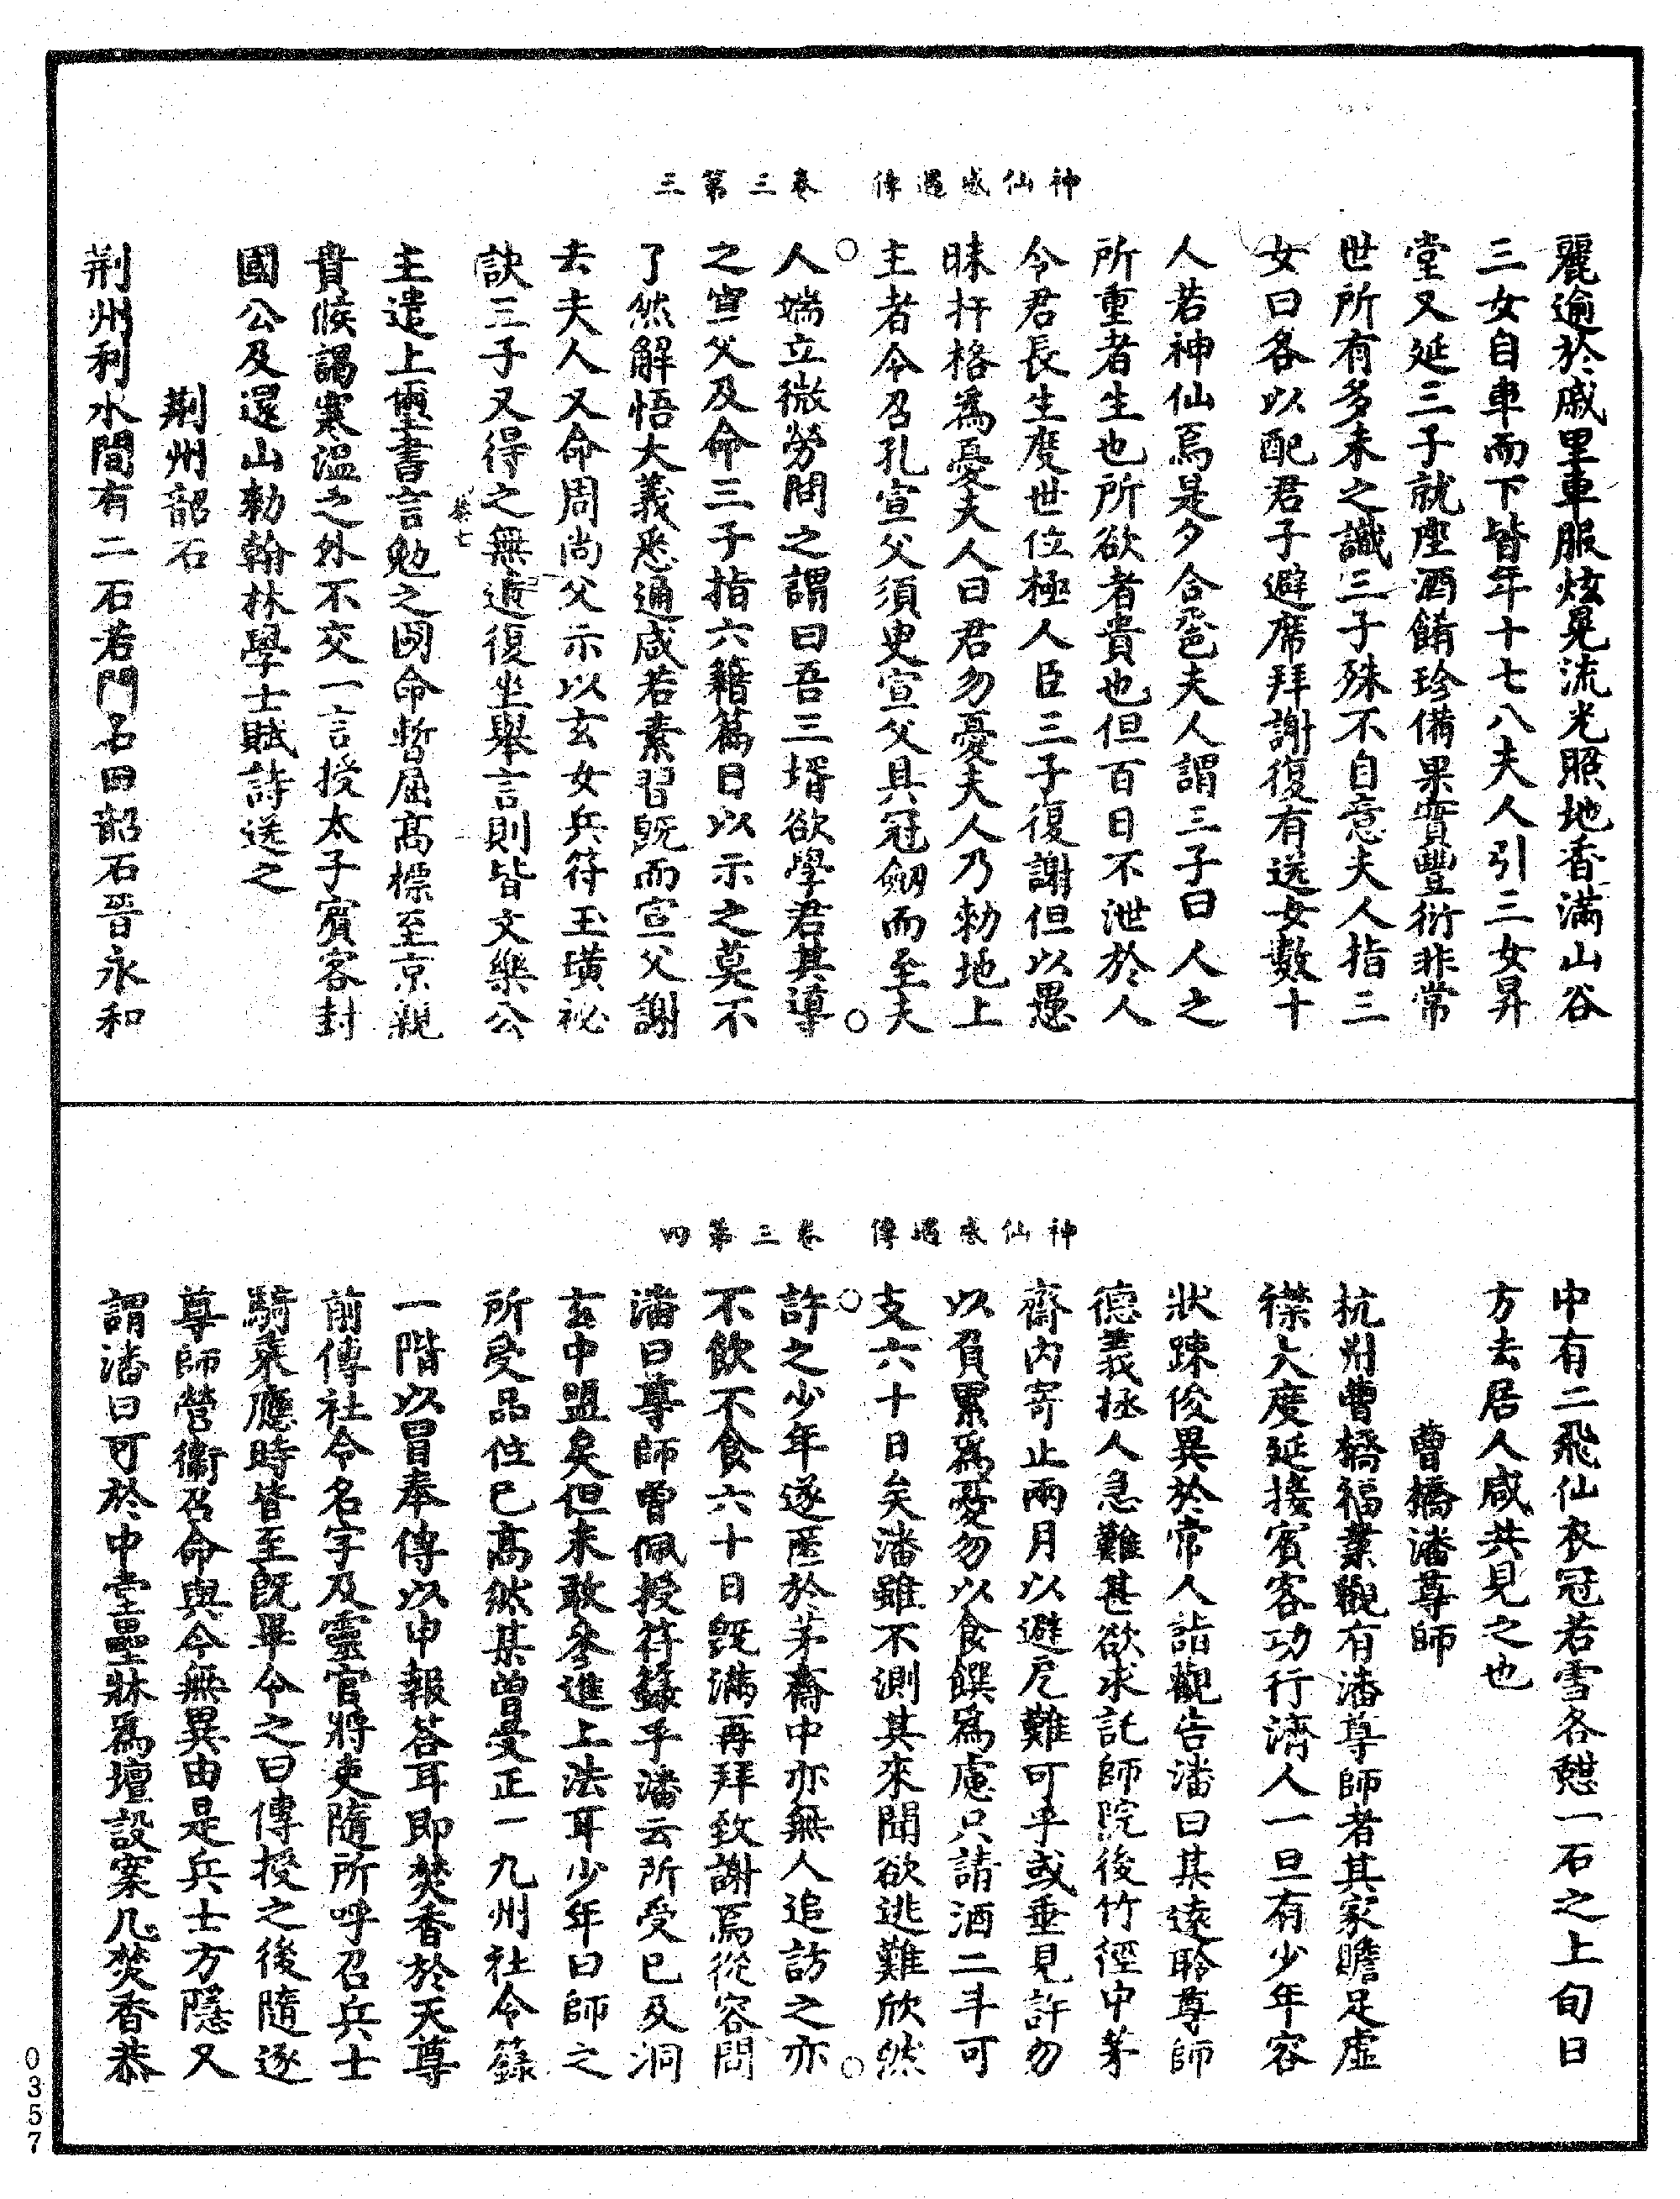 神仙感遇傳　卷三第三
麗逾於戚里車服炫晃流光照地香滿山谷
三女自車而下皆年十七八夫人引三女昇
堂又延三子就座酒餚珍備果實豐衍非常
世所有多未之識三子殊不自意夫人指三
女曰各以配君子避席拜謝復有送女數十
人若神仙焉是夕合巹夫人謂三子曰人之
所重者生也所欲者貴也但百日不泄於人
令君長生度世位極人臣三子復謝但以愚
昧扞格為憂夫人曰君勿憂夫人乃勅地上
主者令召孔宣父須臾宣父具冠劒而至夫
人端立微勞問之謂曰吾三壻欲學君其導
之宣父及命三子指六籍篇目以示之莫不
了然解悟大義悉通咸若素習既而宣父謝
去夫人又命周尚父示以玄女兵符玉璜祕
訣三子又得之無遺復坐舉言則皆文樂公
主遣上璽書言勉之國命暫屈高標至京親
貴候謁寒溫之外不交一言授太子賓客封
國公及還山勅翰林學士賦詩送之
荆州韶石
荆州利水間有二石若門名曰韶石晉永和
神仙感遇傳　卷三第四
中有二飛仙衣冠若雪各憇一石之上旬日
方去居人咸共見之也
曹橋潘尊師
杭州曹橋福業觀有潘尊師者其家贍足虛
襟大度延接賓客功行濟人一旦有少年容
狀踈俊異於常人詣觀告潘曰某遠聆尊師
德義拯人急難甚欲求託師院後竹徑中茅
齋內寄止兩月以避厄難可乎或垂見許勿
以負累為憂勿以食饌為慮只請酒二斗可
支六十日矣潘雖不測其來聞欲逃難欣然
許之少年遂匿於茅齋中亦無人追訪之亦
不飲不食六十日既滿再拜致謝焉從容問
潘曰尊師曾佩授符籙乎潘云所受已及洞
玄中盟矣但未敢參進上法耳少年曰師之
所受品位已高然某曾受正一九州社令籙
一階以冒奉傳以申報答耳即焚香於天尊
前傳社令名字及靈官將吏隨所呼召兵士
騎乘應時皆至既畢令之曰傳授之後隨逐
尊師營衛召命與今無異由是兵士方隱又
謂潘曰可於中堂壘牀為壇設案几焚香恭
0357